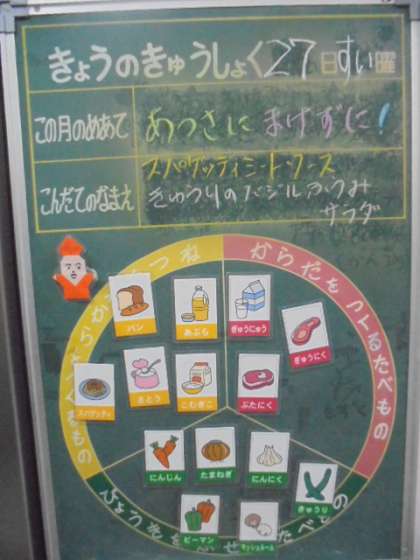 きょうのきゅうしょく 27日すい曜
この月のめあて あつさに まけずに!
こんだてのなまえ スパゲッティミートソース
きゅうりのバジルふうみ
サラダ
からだをつくるたべもの
パン
あぶら
ぎゅうにゅう
ぎゅうにく
スパゲッティ
さとう
こむぎこ
ぶたにく
にんじん
たまねぎ
にんにく
きゅうり
ピーマン
マッシュルーム